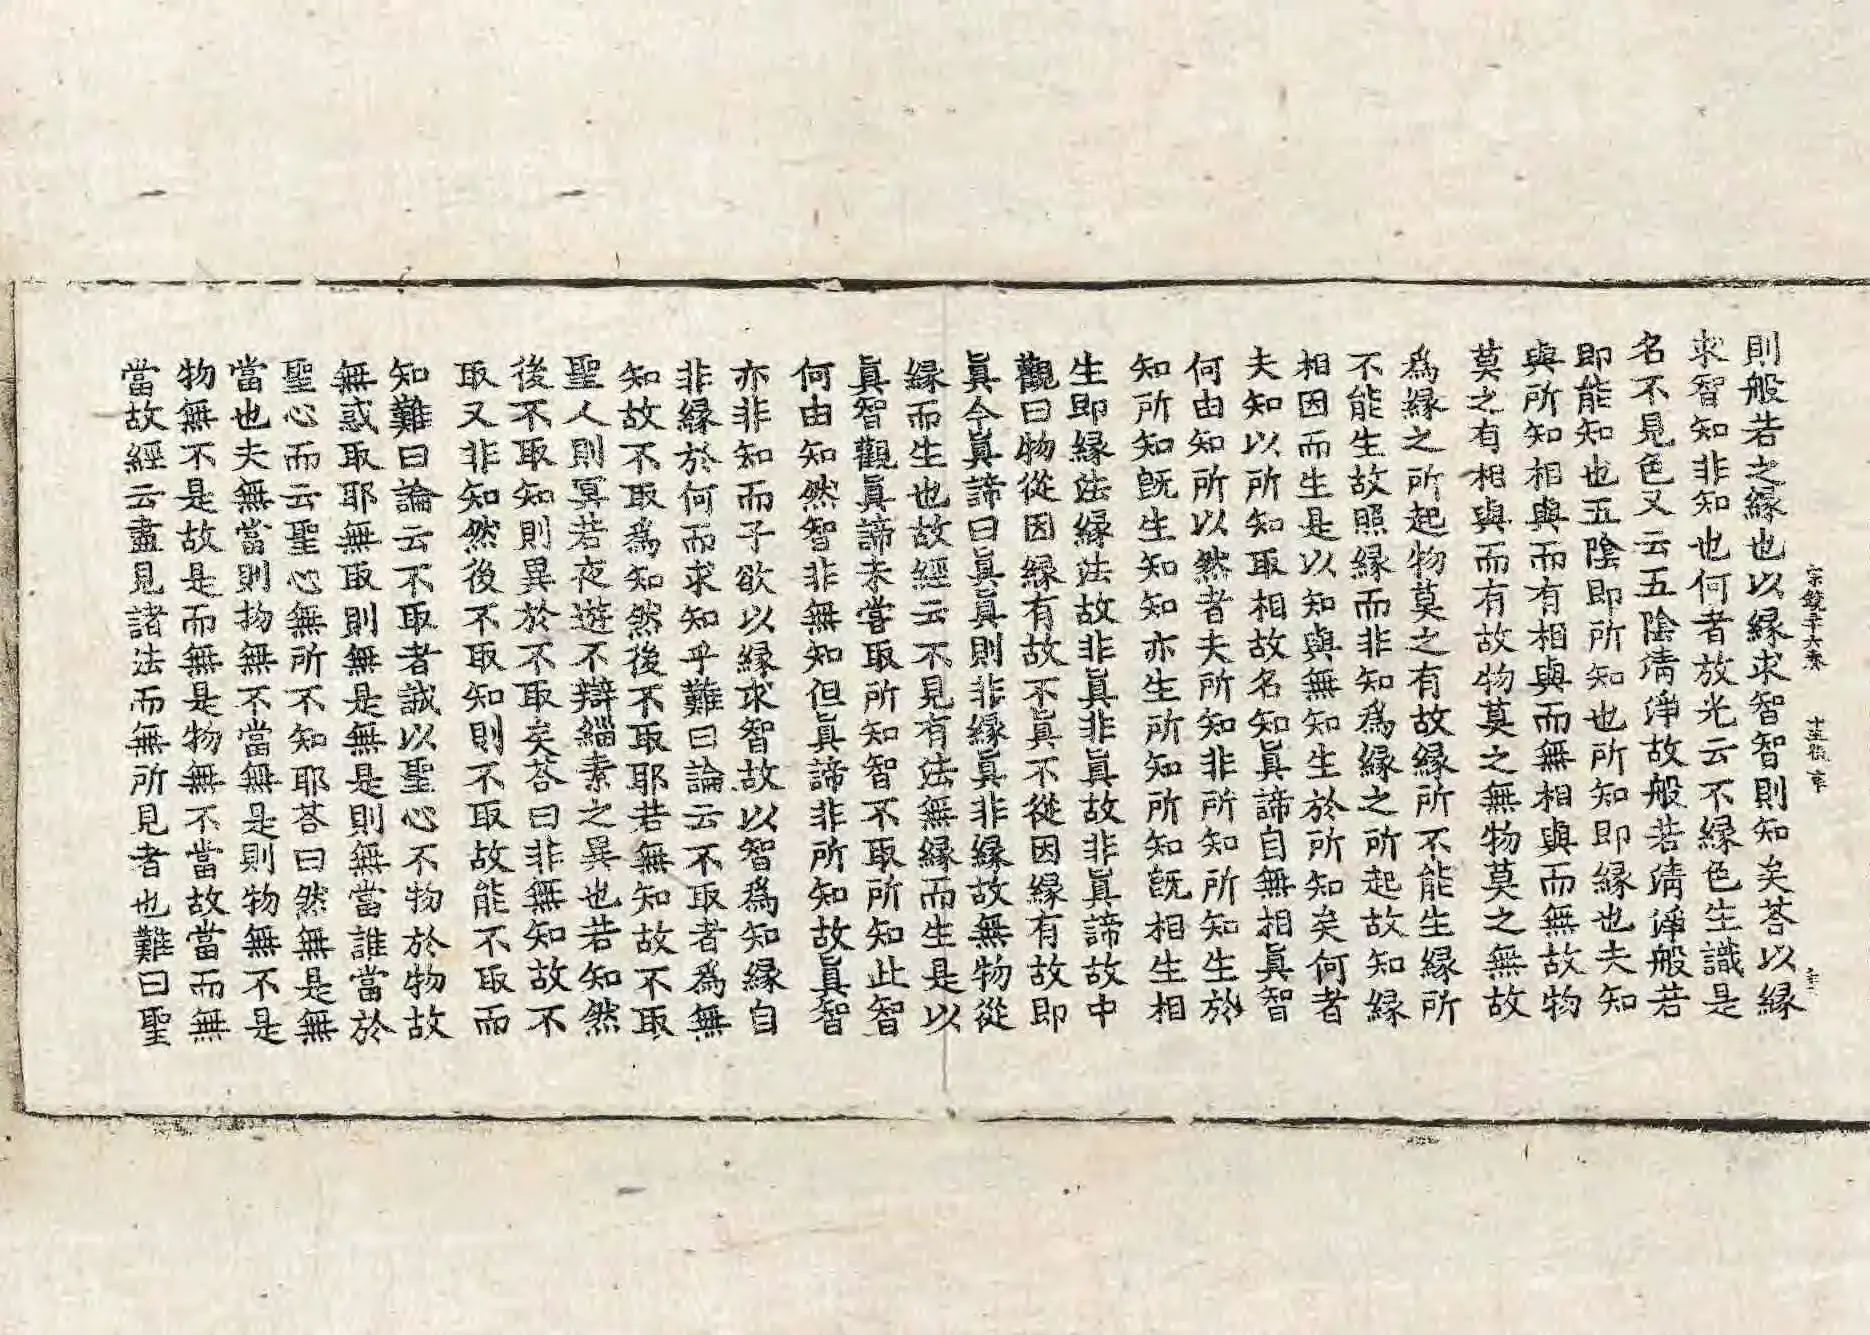 則般若之縁也以縁求智智則知矣荅以縁
求智知非知也何者放光云不縁色生識是
名不見色又云五陰清淨故般若清淨般若
即能知也五陰即所知也所知即縁也夫知
與所知相與而有相與而無相與而無故物
莫之有相與而有故物莫之無物莫之無故
爲縁之所起物莫之有故縁所不能生縁所
不能生故照縁而非知爲縁之所起故知縁
相因而生是以知與無知生於所知矣何者
夫知以所知取相故名知眞諦自無相眞智
何由知所以然者夫所知非所知所知生於
知所知旣生知知亦生所知所知旣相生相
生即縁法縁法故非眞非眞故非眞諦故中
觀曰物從因縁有故不眞不從因縁有故即
眞今眞諦曰眞眞則非縁眞非縁故無物從
縁而生也故經云不見有法無縁而生是以
眞智觀眞諦未嘗取所知智不取所知此智
何由知然智非無知但眞諦非所知故眞智
亦非知而子欲以縁求智故以智爲知縁自
非縁於何而求知乎難曰論云不取者爲無
知故不取爲知然後不取耶若無知故不取
聖人則冥若夜遊不辯緇素之異也若知然
後不取知則異於不取矣荅曰非無知故不
取又非知然後不取知則不取故能不取而
知難曰論云不取者誠以聖心不物於物故
無惑取耶無取則無是無是則無當誰當於
聖心而云聖心無所不知耶荅曰然無是無
當也夫無當則物無不當無是則物無不是
物無不是故是而無是物無不當故當而無
當故經云盡見諸法而無所見者也難曰聖